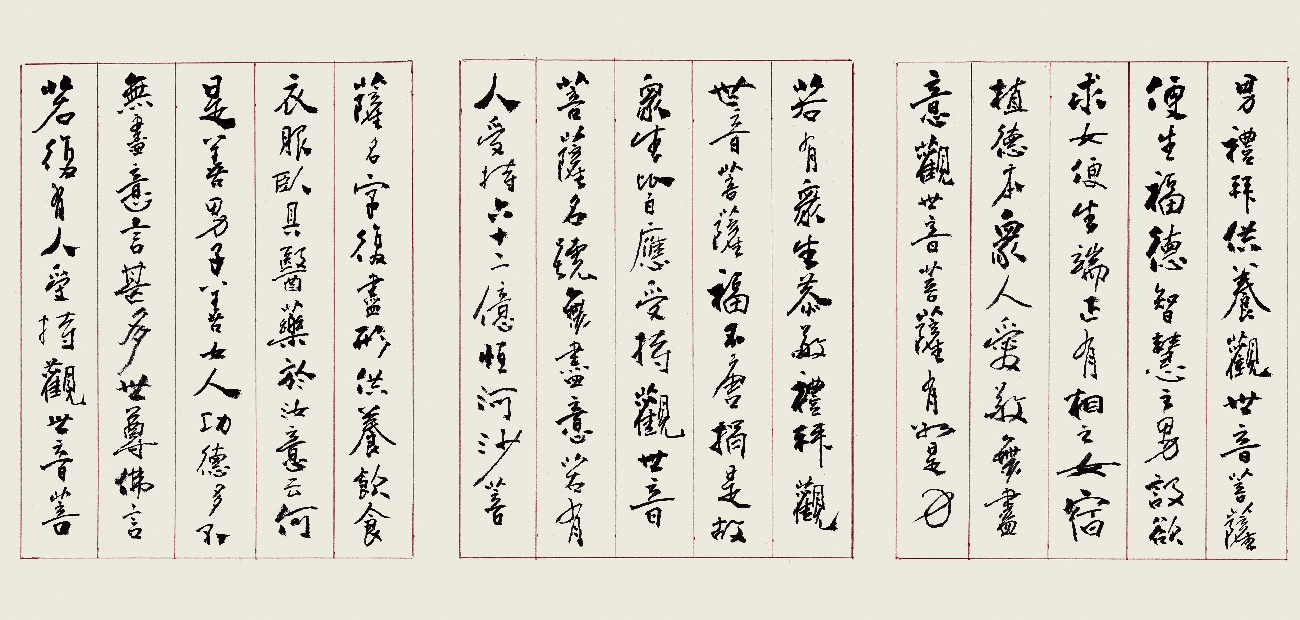 男禮拜供養觀世音菩薩
便生福德智慧之男設欲
求女便生端正有相之女宿
植德本眾人愛敬無盡
意觀世音菩薩有如是力
若有眾生恭敬禮拜觀
世音菩薩福不唐捐是故
眾生皆應受持觀世音
菩薩名號無盡意若有
人受持六十二億恒河沙菩
薩名字復盡形供養飲食
衣服臥具醫藥於汝意云何
是善男子善女人功德多不
無盡意言甚多世尊佛言
若復有人受持觀世音菩